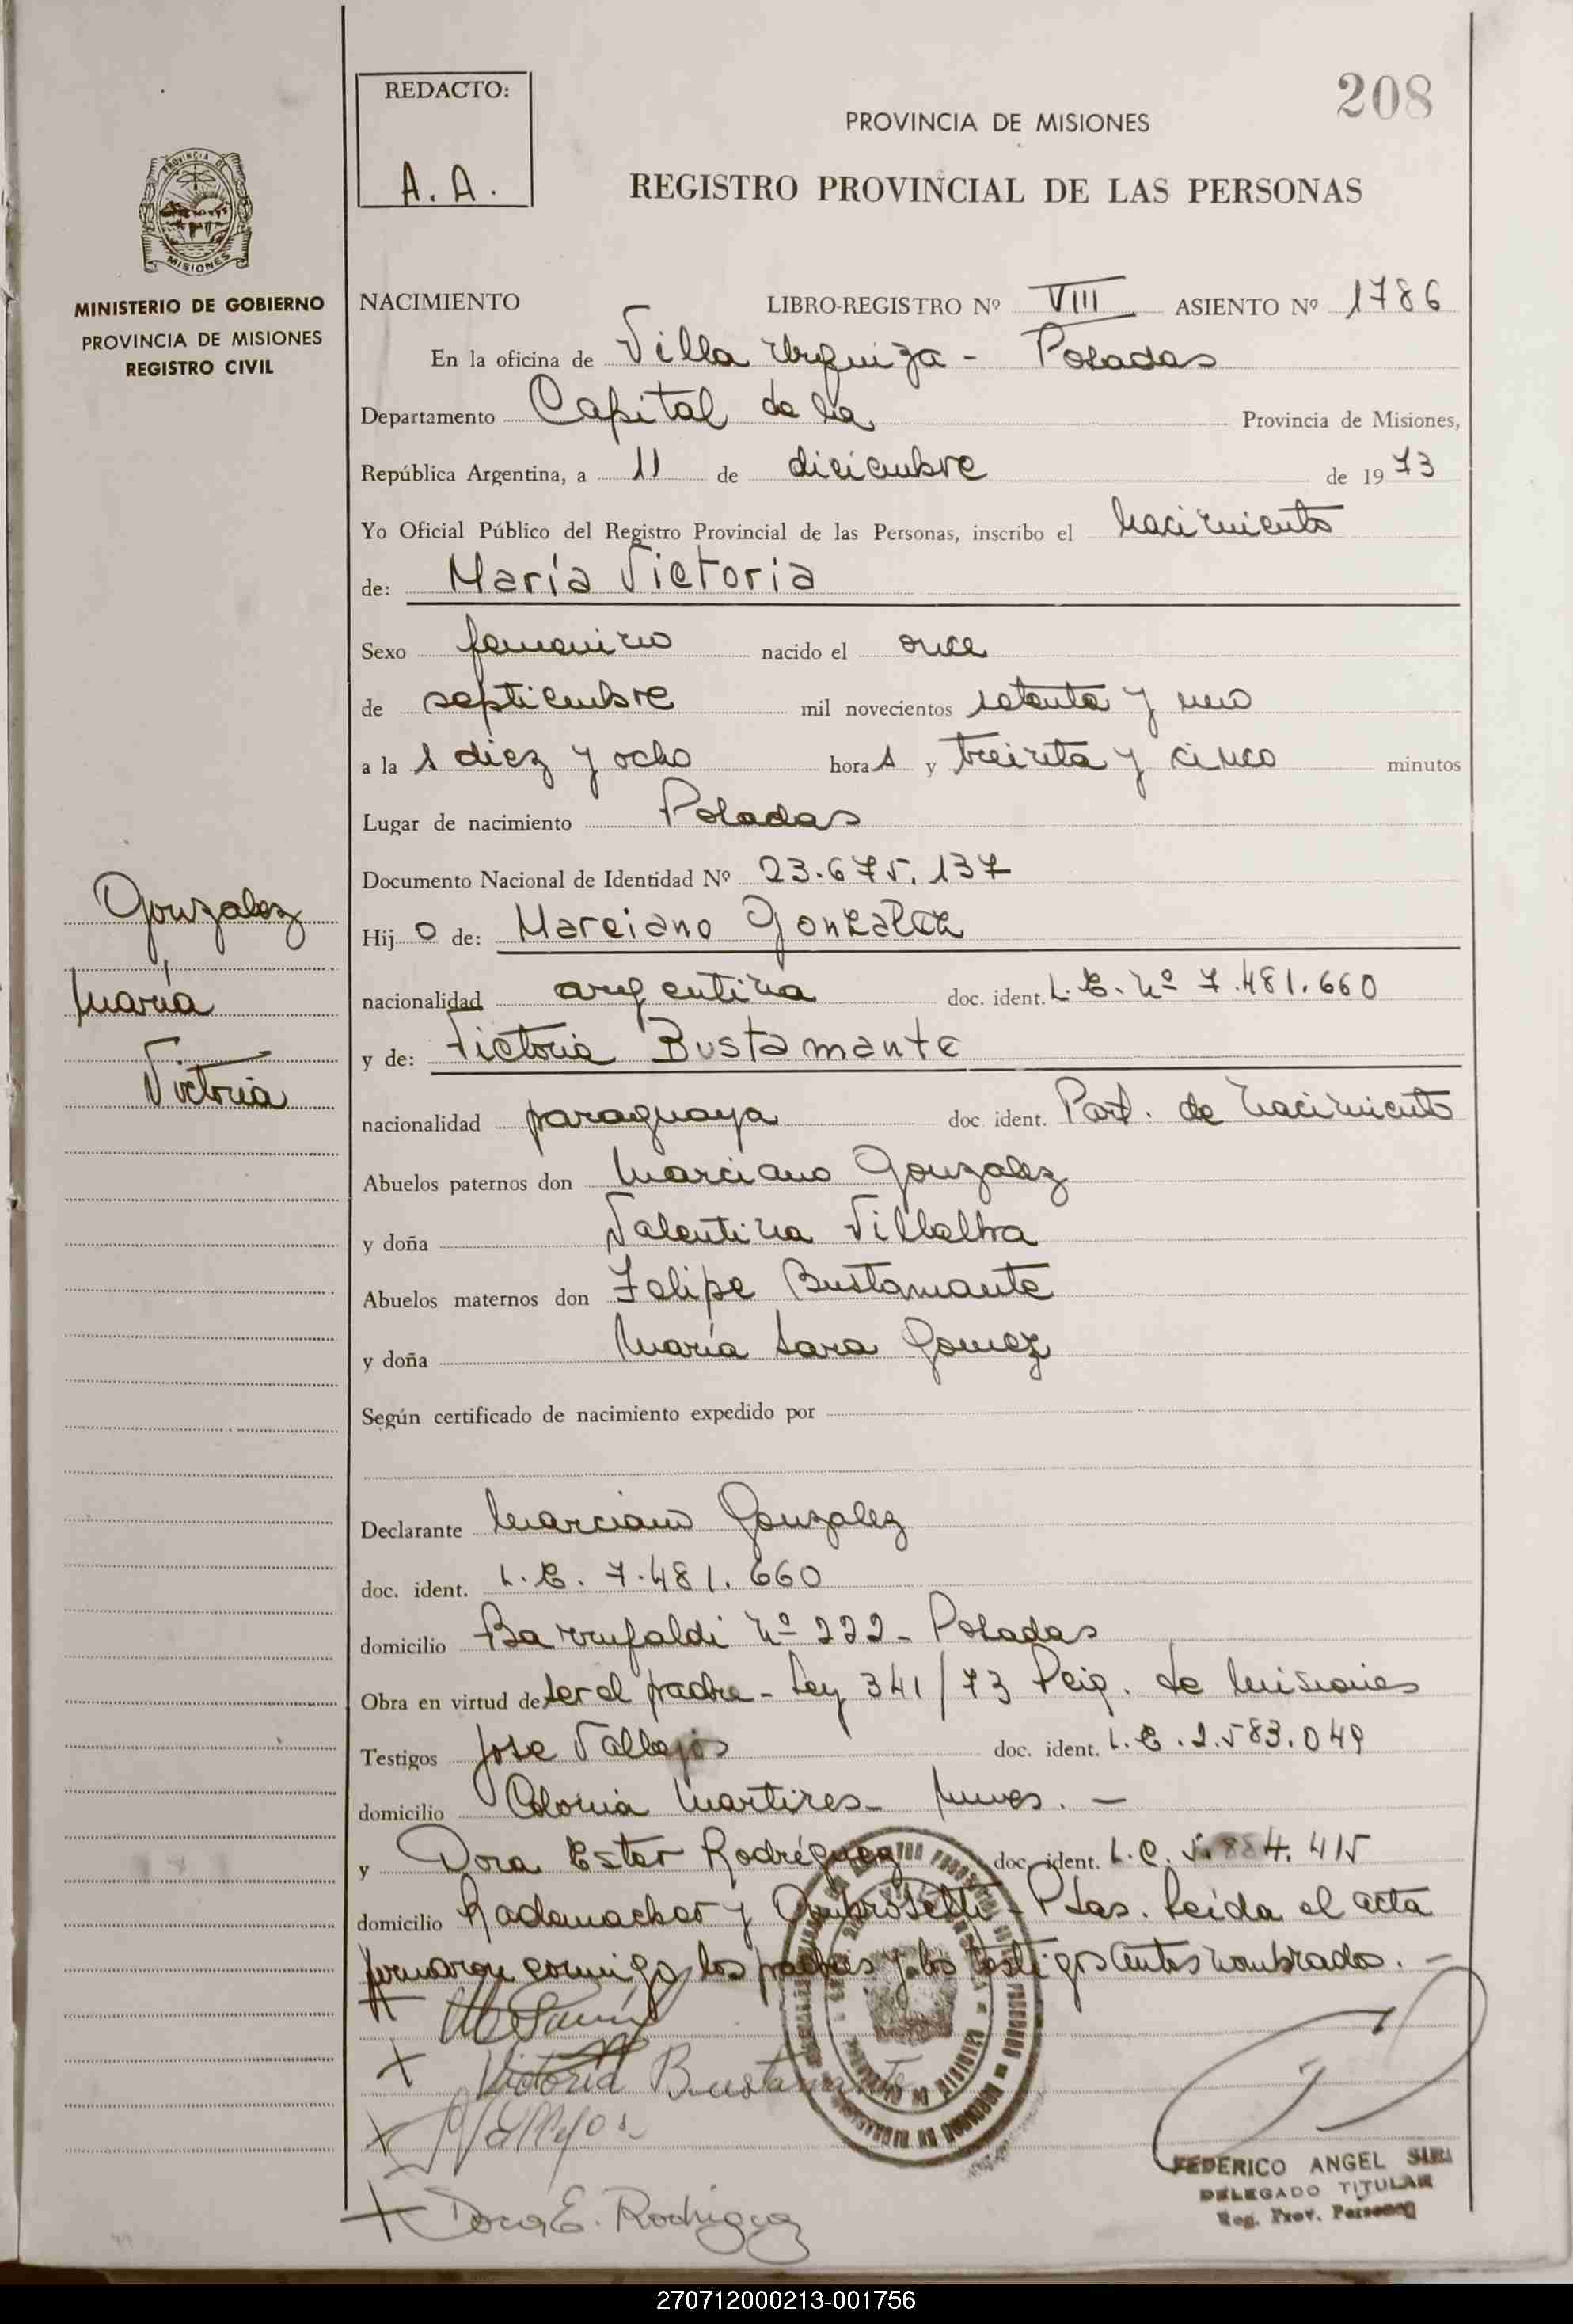 REDACTO:
A. A.
208
PROVINCIA DE MISIONES
REGISTRO PROVINCIAL DE LAS PERSONAS
MISIONES
MINISTERIO DE GOBIERNO
PROVINCIA DE MISIONES
REGISTRO CIVIL
NACIMIENTO LIBRO-REGISTRO Nº VIII ASIENTO Nº 1786
En la oficina de Villa Urquiza - Posadas
Departamento Capital de la Provincia de Misiones,
República Argentina, a 11 de diciembre de 1973
Yo Oficial Público del Registro Provincial de las Personas, inscribo el nacimiento
de: María Victoria
Sexo femenino nacido el once
de septiembre mil novecientos setenta y uno
a la s diez y ocho hora s y treinta y cinco minutos
Lugar de nacimiento Posadas
Documento Nacional de Identidad Nº 23.675.137
Gonzalez
María
Victoria
Hij o de: Marciano Gonzalez
nacionalidad argentina doc. ident. L.E. Nº 7.481.660
y de: Victoria Bustamante
nacionalidad paraguaya doc. ident. Part. de Nacimiento
Abuelos paternos don Marciano Gonzalez
y doña Valentina Villalba
Abuelos maternos don Felipe Bustamante
y doña María Sara Gomez
Según certificado de nacimiento expedido por
Declarante Marciano Gonzalez
doc. ident. L.E. 7.481.660
domicilio Barrufaldi Nº 222 - Posadas
Obra en virtud de ser el padre - Ley 341/73 de Misiones
Testigos Jose Vallejos doc. ident. L.E. 2.583.049
domicilio Colonia Martires -
y Dora Ester Rodríguez doc. ident. L.C. 5.884.415
domicilio Rademacher y Ambrosetti - Psas. Leída el acta
firmaron conmigo los padres y los testigos antes nombrados. -
Victoria Bustamante
Vallejos
Dora E. Rodriguez
FEDERICO ANGEL
DELEGADO TITULAR
Reg. Prov. Personas
270712000213-001756